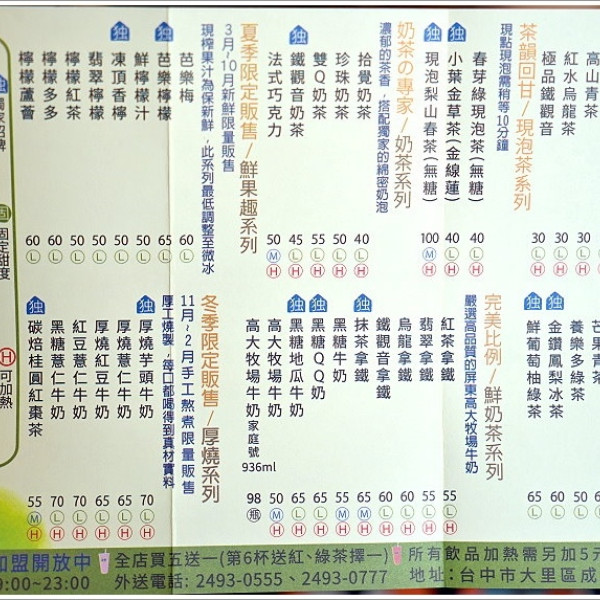 高山青茶 30
紅水烏龍茶 30 L H
極品鐵觀音 30 L H
茶韻回甘/現泡茶系列
現點現泡需稍等10分鐘
春芽綠現泡茶(無糖) 40 L H
独 小葉金草茶(金線蓮) 40 L H
独 現泡梨山春茶(無糖) 100 M H
奶茶の專家/奶茶系列
濃郁的茶香,搭配獨家的綿密奶泡
拾覺奶茶 40 L H
珍珠奶茶 50 L H
雙Q奶茶 55 L H
独 鐵觀音奶茶 45 L H
法式巧克力 50 M H
夏季限定販售/鮮果趣系列
3月~10月新鮮限量販售
現榨果汁為保新鮮,此系列最低調整至微冰
芭樂梅 60 L
独 芭樂檸檬 65 L
鮮檸檬汁 50 L
独 凍頂香檸 50 L
翡翠檸檬 50 L
檸檬紅茶 50 L
檸檬多多 60 L
檸檬蘆薈 60 L
独 獨家招牌
固 固定甜度
H 可加熱
芒果青茶
養樂多綠茶 50 L
独 金鑽鳳梨冰茶 60 L
独 鮮葡萄柚綠茶 65 L
完美比例/鮮奶茶系列
嚴選高品質的屏東高大牧場牛奶
紅茶拿鐵 55 L H
翡翠拿鐵 55 L H
烏龍拿鐵 60 L H
鐵觀音拿鐵 60 L H
独 抹茶拿鐵 65 M H
黑糖牛奶 55 M H
独 黑糖QQ奶 65 L H
独 黑糖地瓜牛奶 65 L H
高大牧場牛奶 50 M H
高大牧場牛奶 家庭號 936ml 98 瓶
冬季限定販售/厚燒系列
11月~2月手工熬煮限量販售
厚工燒製,每口都喝得到真材實料
独 厚燒芋頭牛奶 70 L H
厚燒薏仁牛奶 65 L H
厚燒紅豆牛奶 65 L H
紅豆薏仁牛奶 70 L H
黑糖薏仁牛奶 70 L H
独 碳焙桂圓紅棗茶 55 M H
加盟開放中 全店買五送一(第6杯送紅、綠茶擇一) 所有飲品加熱需另加5元
9:00~23:00 外送電話: 2493-0555、2493-0777 地址:台中市大里區成